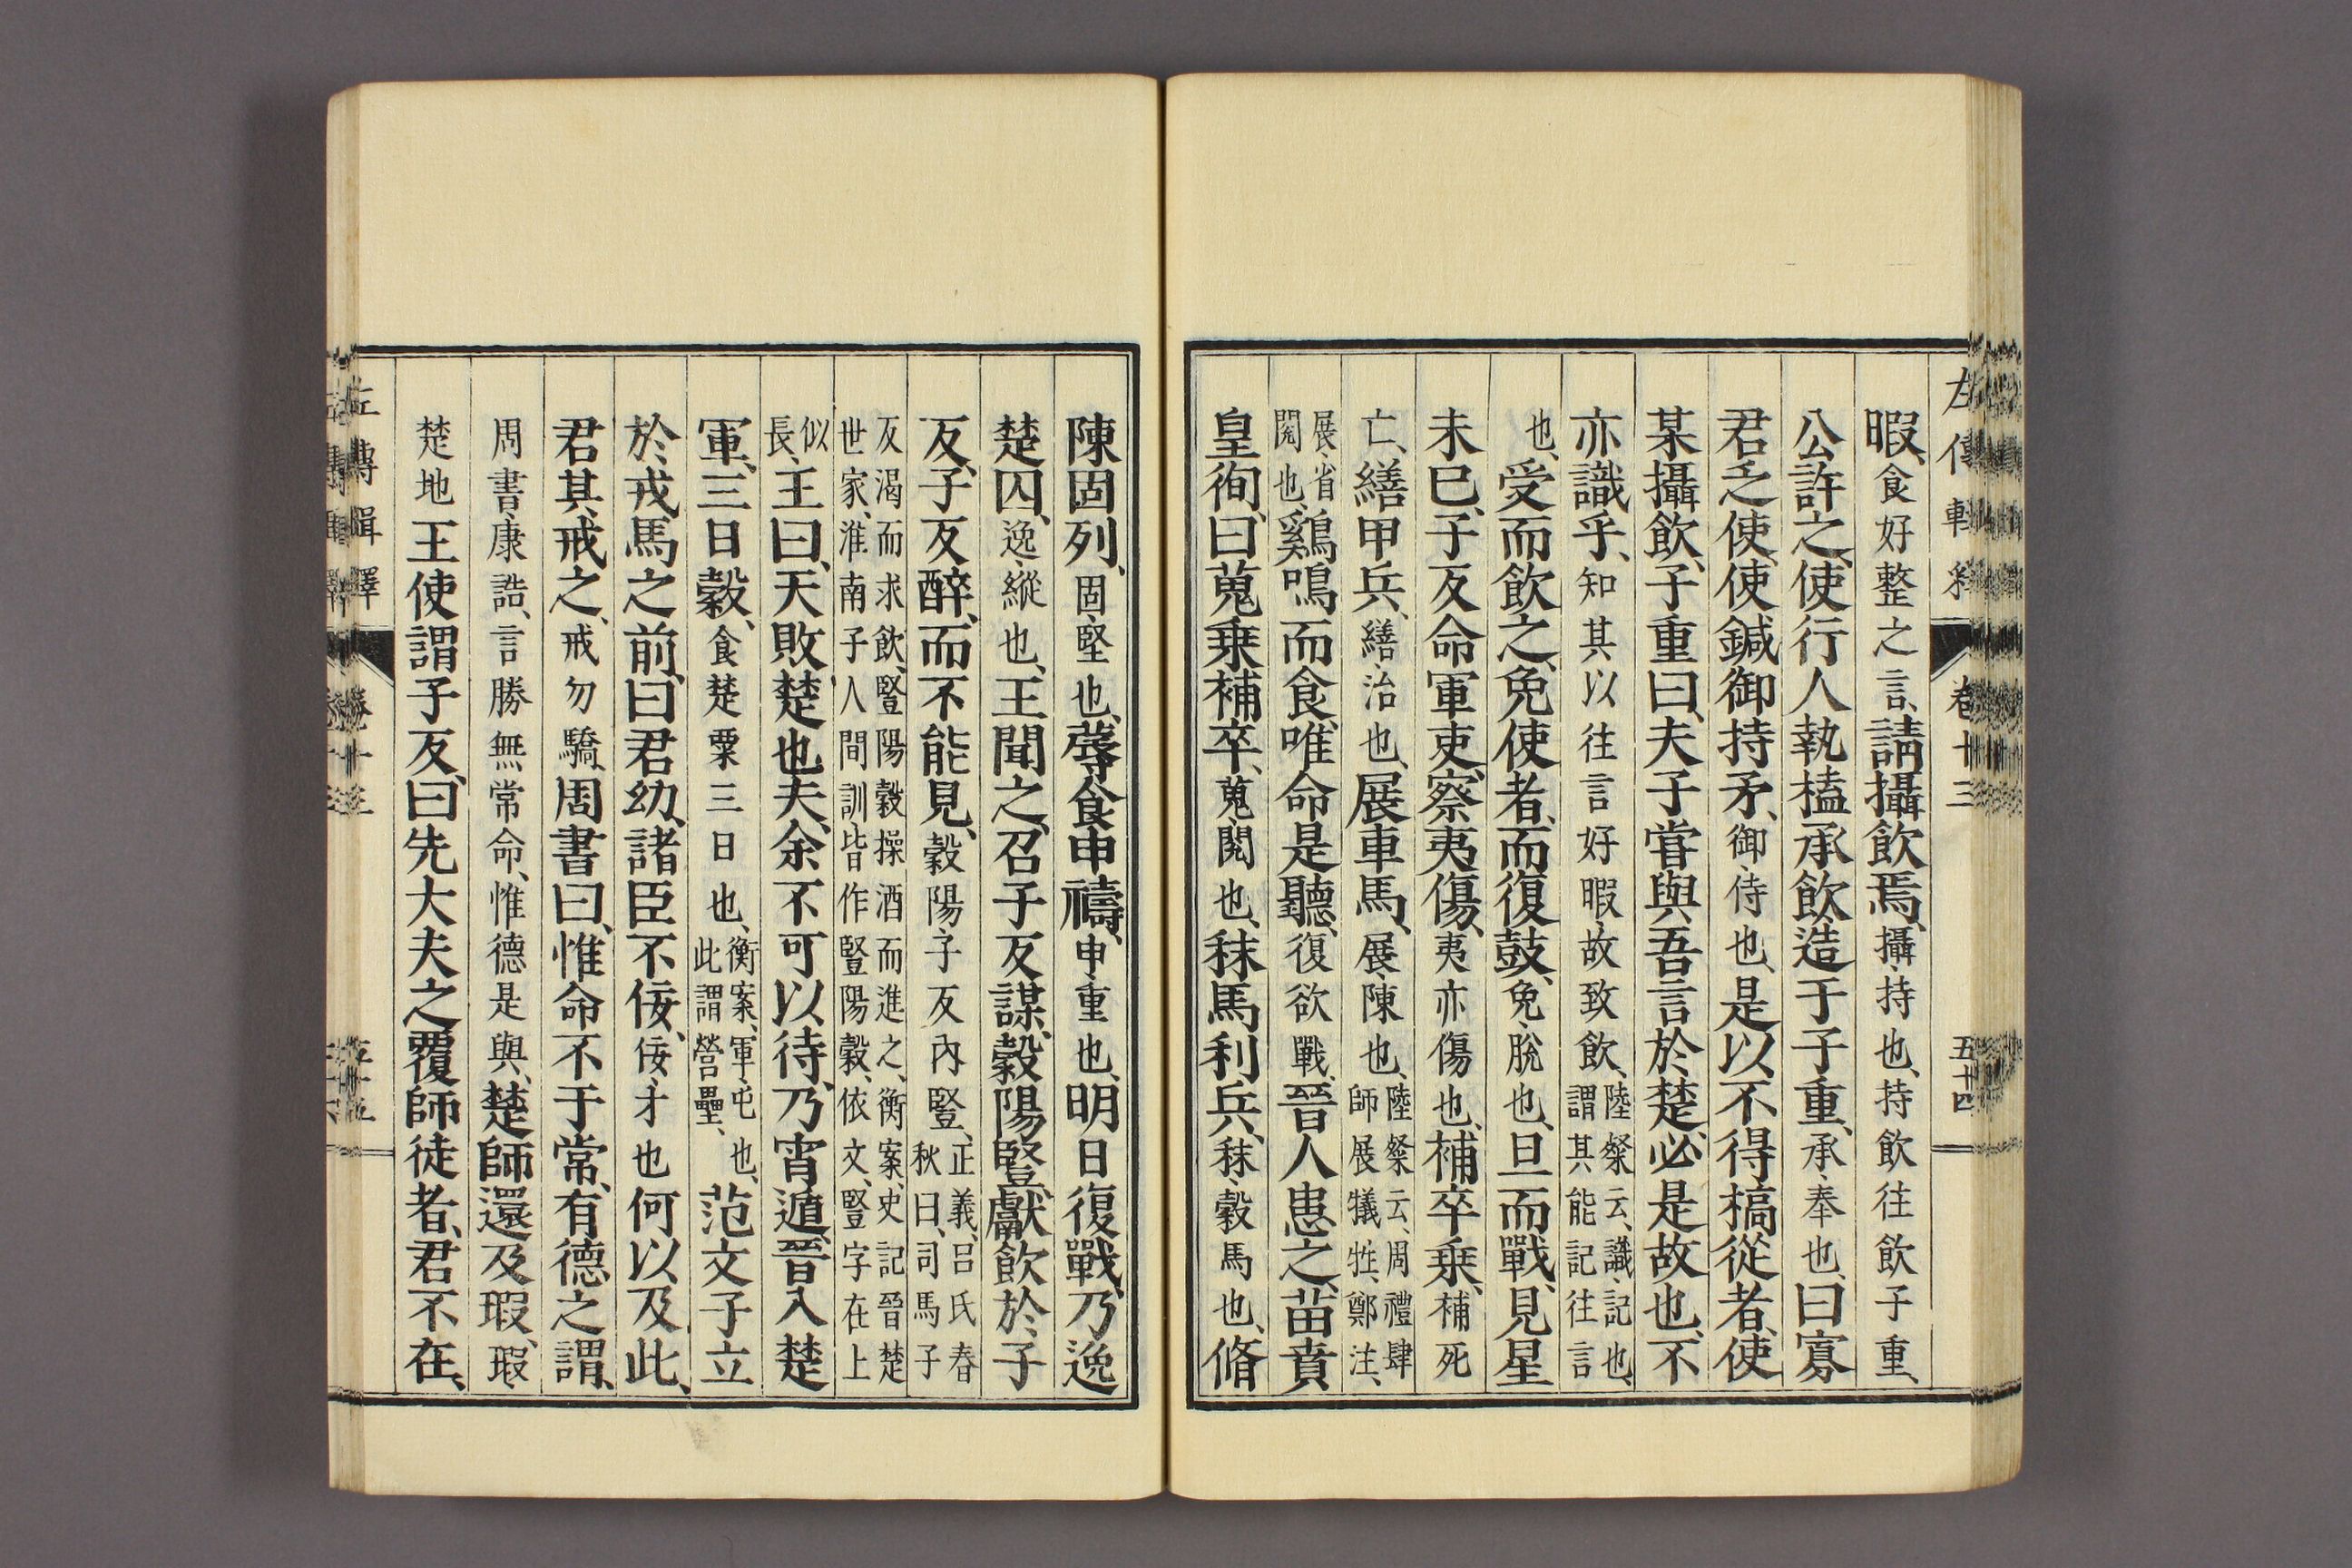 左傳輯釋 卷十三 五十四
暇、食好整之言、請攝飲焉、攝、持也、持飲往飲子重、
公許之、使行人執榼承飲、造于子重、承、奉也、曰寡
君乏使、使鍼御持矛、御、侍也、是以不得犒從者、使
某攝飲、子重曰、夫子嘗與吾言於楚、必是故也、不
亦識乎、知其以往言好暇、故致飲、陸粲云、識、記也、謂其能記往言
也、受而飲之、免使者、而復鼓、免、脫也、旦而戰、見星
未已、子反命軍吏、察夷傷、夷亦傷也、補卒乗、補死
亡、繕甲兵、繕、治也、展車馬、展、陳也、陸粲云、周禮肆師展犧牲、鄭注、
展、省閱也、鷄鳴而食、唯命是聽、復欲戰、晉人患之、苗賁
皇徇曰、蒐乗補卒、蒐、閱也、秣馬利兵、秣、穀馬也、脩
陳固列、固、堅也、蓐食申禱、申、重也、明日復戰、乃逸
楚囚、逸、縱也、王聞之、召子反謀、穀陽豎獻飲於子
反、子反醉、而不能見、穀陽、子反內豎、正義、呂氏春秋曰、司馬子
反渴而求飲、豎陽穀操酒而進之、衡案、史記晉楚世家、淮南子人間訓、皆作豎陽穀、依文、豎字在上
似長、王曰、天敗楚也夫、余不可以待、乃宵遁、晉入楚
軍、三日穀、食楚粟三日也、衡案、軍、屯也、此謂營壘、范文子立
於戎馬之前、曰君幼、諸臣不佞、佞、才也何以及此、
君其戒之、戒勿驕、周書曰、惟命不于常、有德之謂、
周書、康誥、言勝無常命、惟德是與、楚師還及瑕、瑕、
楚地王使謂子反曰、先大夫之覆師徒者、君不在、
左傳輯釋 卷十三 五十五